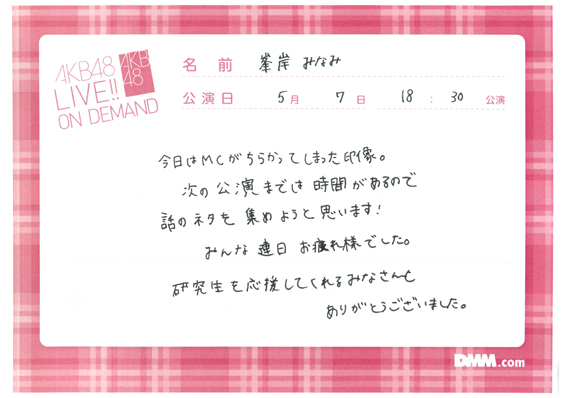 AKB48
LIVE!!
ON DEMAND
AKB
48
名前 峯岸みなみ
公演日 5月7日 18:30公演
今日はMCがちらかってしまった印像。
次の公演までは時間があるので
話のネタを集めようと思います!
みんな連日お疲れ様でした。
研究生を応援してくれるみなさんも
ありがとうございました。
DMM.com